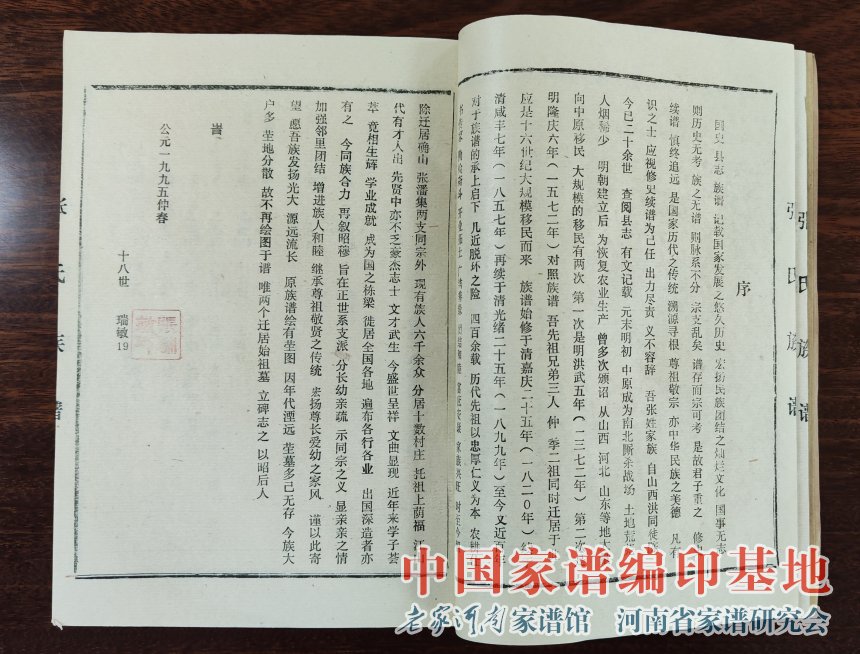 张氏族谱
张氏族谱
序
国史 县志 族谱 记载国家发展之悠久历史 宏扬民族团结之灿烂文化 国事无志
则历史无考 族之无谱 则脉系不分 宗支乱矣 谱存而宗可考 是故君子重之 修
续谱 慎终追远 是国家历代之传统 溯源寻根 尊祖敬宗 亦中华民族之美德 凡有
识之士 应视修史续谱为己任 出力尽责 义不容辞 吾张姓家族 自山西洪同徒
今已二十余世 查阅县志 有文记载 元末明初 中原成为南北厮杀战场 土地荒
人烟稀少 明朝建立后 为恢复农业生产 曾多次颁诏 从山西 河北 山东等地大
向中原移民 大规模的移民有两次 第一次是明洪武五年（一三七二年）第二次
明隆庆六年（一五七二年）对照族谱 吾先祖兄弟三人 仲 季二祖同时迁居于
应是十六世纪大规模移民而来 族谱始修于清嘉庆二十五年（一八二0年）
清咸丰七年（一八五七年）再续于清光绪二十五年（一八九九年）至今又近百
对于族谱的承上启下 几近脱环之险 四百余载 历代先祖以忠厚仁义为本 农耕
除迁居确山 张潘集两支同宗外 现有族人六千余众 分居十数村庄 托祖上荫福
代有才人出 先贤中亦不乏豪杰志士 文才武生 今盛世呈祥 文曲显现 近年来学子荟
萃 竟相生辉 学业成就 成为国之栋梁 徙居全国各地 遍布各行各业 出国深造者亦
有之 今同族合力 再叙昭穆 旨在正世系支派 分长幼亲疏 示同宗之义 显亲亲之情
加强邻里团结 增进族人和睦 继承尊祖敬贤之传统 宏扬尊长爱幼之家风 谨以此寄
望 愿吾族发扬光大 源远流长 原族谱绘有茔图 因年代湮远 茔墓多己无存 今族大
户多 茔地分散 故不再绘图于谱 唯两个迁居始祖墓 立碑志之 以昭后人
公元一九九五仲春
十八世 瑞敏19
张氏族谱
中国家谱编印基地
老家河南家谱馆 河南省家谱研究会